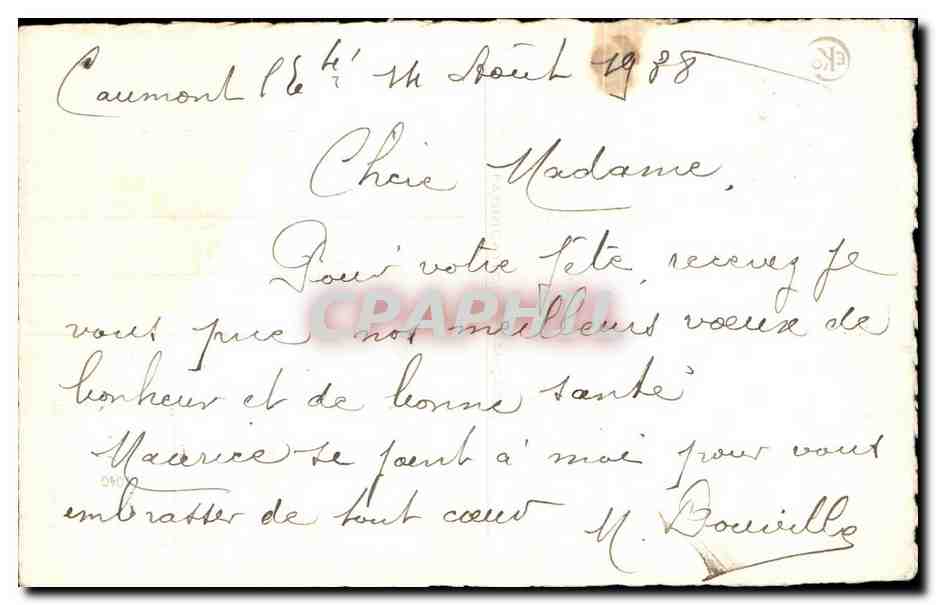 Caumont l'Eté 14 Août 1938
EKO
Chère Madame,
Pour votre fête, recevez je
vous prie nos meilleurs vœux de
bonheur et de bonne santé
Maurice se joint à moi pour vous
embrasser de tout cœur
M. Bouville
CPAPHIL